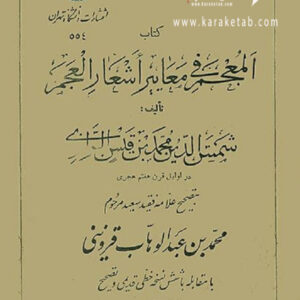 www.karaketab.com
انتشارات دانشگاه تهران
۵۵۴
کتاب
المعجم فی معاییر أشعار العجم
تألیف:
شمس الدین محمد بن قیس الرازی
در اوایل قرن هفتم هجری
بتصحیح علامه فقید سعید مرحوم
محمد بن عبدالوهاب قزوینی
با مقابله با شش نسخه خطی قدیمی و تصحیح